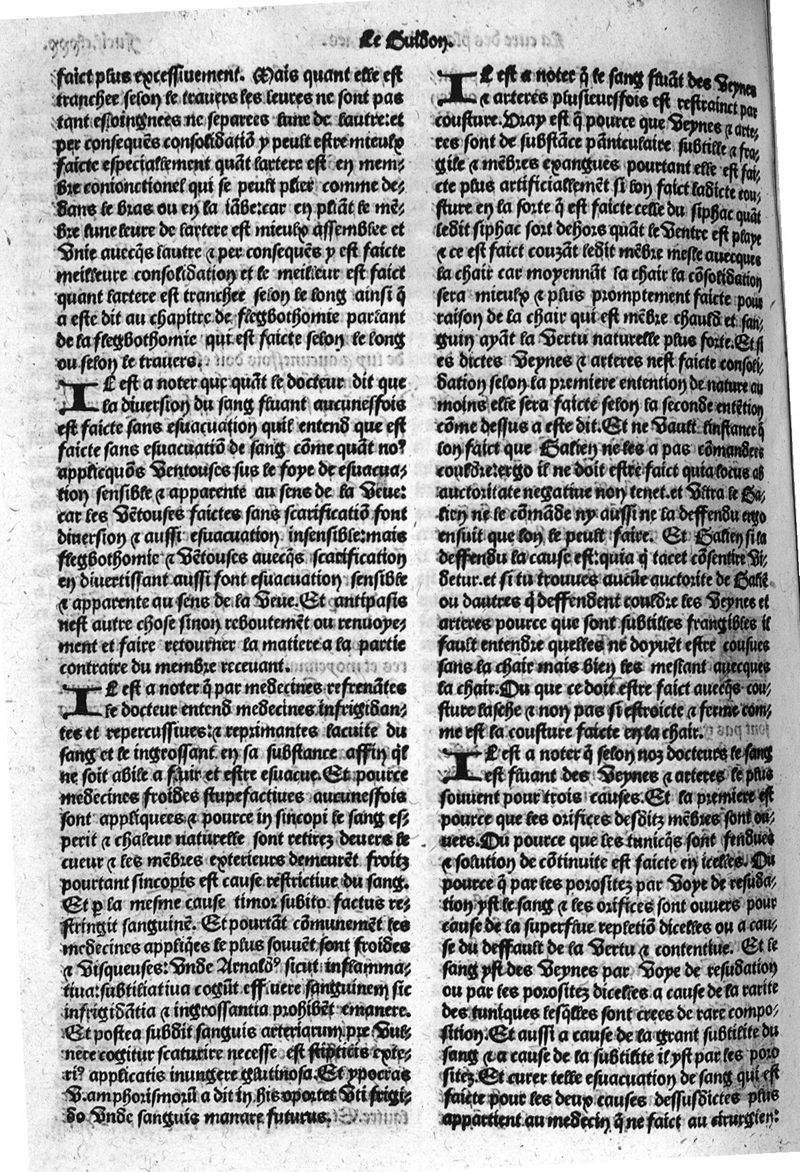 Le Guidon.
faict plus excessiuement. Mais quant elle est
tranchee selon le trauers les leures ne sont pas
tant esloingnees ne separees lune de lautre:et
per consequēs consolidatiō y peult estre mieulx
faicte especiallement quāt lartere est en mem-
bre conionctionel qui se peult plier comme de-
dans le bras ou en la iābe:car en pliāt le mē-
bre lune leure de lartere est mieulx assemblee et
vnie auecq̄s lautre ⁊ per consequēs y est faicte
meilleure consolidation et le meilleur est faict
quant lartere est tranchee selon le long ainsi q̄
a este dit au chapitre de flegbothomie parlant
de la flegbothomie qui est faicte selon le long
ou selon le trauers.
Il est a noter que quāt le docteur dit que
la diuersion du sang fluant aucunesfois
est faicte sans esuacuation quil entend que est
faicte sans esuacuatiō de sang cōme quāt noꝰ
applicquōs ventouses sus le foye de esuacua-
tion sensible ⁊ apparente au sens de la veue:
car les vētouses faictes sans scarificatiō font
diuersion ⁊ aussi esuacuation insensible:mais
flegbothomie ⁊ vētouses auecq̄s scarification
en diuertissant aussi font esuacuation sensible
⁊ apparente au sens de la veue. Et antipasis
nest autre chose sinon reboutement ou renuoye-
ment et faire retourner la matiere a la partie
contraire du membre receuant.
Il est a noter q̄ par medecines refrenātes
le docteur entend medecines infrigidan-
tes et repercussiues:⁊ reprimantes lacuite du
sang et le ingrossant en sa substance affin q̄l
ne soit abile a fluir et estre esuacue. Et pource
medecines froides stupefactiues aucunesfois
sont appliquees ⁊ pource in sincopi le sang es-
perit ⁊ chaleur naturelle sont retirez deuers le
cueur ⁊ les mēbres exterieurs demeurēt froitz
pourtant sincopis est cause restrictiue du sang.
Et ꝑ la mesme cause timor subito factus re-
stringit sanguinē. Et pourtāt cōmunement les
medecines appliq̄es le plus souuēt sont froides
⁊ visqueuses: vnde Arnaldꝰ sicut inflamma-
tiua:subtiliatiua cogūt effluere sanguinem sic
infrigidātia ⁊ ingrossantia prohibēt emanere.
Et postea subdit sanguis arteriarum pre vul-
nere cogitur scaturire necesse est stipticis exte-
riꝰ applicatis inungere glutinosa. Et ypocras
v.amphorismorū a dit in his oportet vti frigi-
do vnde sanguis manare futurus.
Il est a noter q̄ le sang fluāt des veynes
⁊ arteres plusieursfois est restrainct par
cousture. Vray est q̄ pource que veynes ⁊ arte-
res sont de substāce pāniculaire subtille ⁊ fra-
gile ⁊ mēbres exangues pourtant elle est fai-
cte plus artificiallemēt si lon faict ladicte cou-
sture en la sorte q̄ est faicte celle du siphac quāt
ledit siphac sort dehors quāt le ventre est playe
⁊ ce est faict couzāt ledit mēbre mesle auecques
la chair car moyennāt la chair la cōsolidation
sera mieulx ⁊ plus promptement faicte pour
raison de la chair qui est mēbre chauld et san-
guin ayāt la vertu naturelle plus forte. Et si
es dictes veynes ⁊ arteres nest faicte consoli-
dation selon la premiere entention de nature au
moins elle sera faicte selon la seconde entētion
cōme dessus a este dit. Et ne vault linstance q̄
lon faict que Galien ne les a pas cōmandees
couldre:ergo il ne doit estre faict quia locus ab
auctoritate negatiue non tenet. et vltra le Ga-
lien ne le cōmāde ny aussi ne la deffendu ergo
ensuit que lon le peult faire. Et Galien si la
deffendu la cause est:quia q̄ tacet cōsentire vi-
detur. et si tu trouues aucūe auctorite de Galiē
ou dautres q̄ deffendent couldre les veynes et
arteres pource que sont subtilles frangibles il
fault entendre quelles ne doyuēt estre cousues
sans la chair mais bien les meslant auecques
la chair. Ou que ce doit estre faict auecq̄s cou-
sture lasche ⁊ non pas si estroicte ⁊ ferme com-
me est la cousture faicte en la chair.
Il est a noter q̄ selon noz docteurs le sang
est fluant des veynes ⁊ arteres le plus
souuent pour trois causes. Et la premiere est
pource que les orifices desditz mēbres sont ou-
uers. Ou pource que les tunicq̄s sont fendues
⁊ solution de cōtinuite est faicte en icelles. Ou
pource q̄ par les porositez par voye de resuda-
tion yst le sang ⁊ les orifices sont ouuers pour
cause de la superflue repletiō dicelles ou a cau-
se du deffault de la vertu ⁊ contentiue. Et le
sang yst des veynes par voye de resudation
ou par les porositez dicelles a cause de la rarite
des tuniques lesq̄lles sont crees de rare compo-
sition. Et aussi a cause de la grant subtilite du
sang ⁊ a cause de la subtilite il yst par les poro
sitez. Et curer telle esuacuation de sang qui est
faicte pour les deux causes dessusdictes plus
appartient au medecin q̄ ne faict au cirurgien: